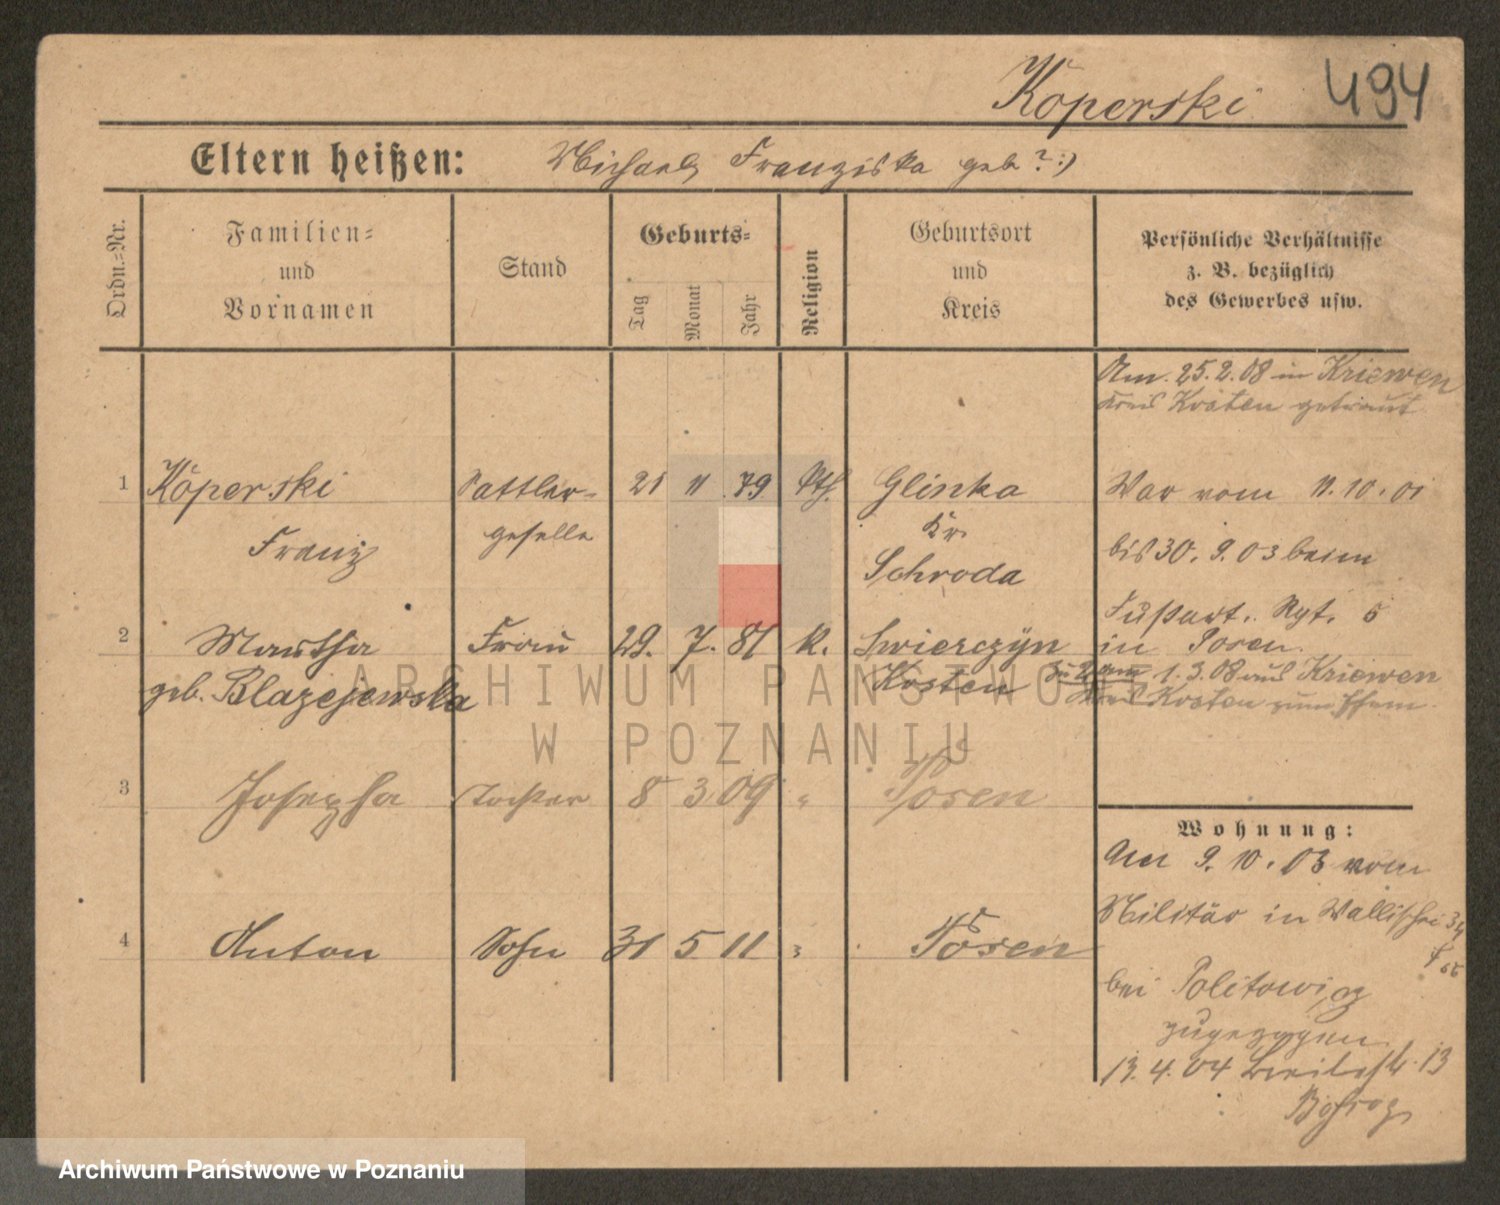 Koperski 494
Eltern heißen: Michael, Franziska geb ? :)
Ordn.-Nr.
Familien-
und
Vornamen
Stand
Geburts-
Tag
Monat
Jahr
Religion
Geburtsort
und
Kreis
Persönliche Verhältnisse
z. B. bezüglich
des Gewerbes usw.
Am 25.2.08 in Kriewen
Kreis Kosten getraut
1 Koperski Sattler- 21 11 79 Kth. Glinka
Franz geselle Kr.
Schroda
War vom 11.10.01
bis 30.9.03 beim
Fußart. Rgt. 5
in Posen.
2 Martha Frau 29. 7. 81 K. Swierczyn
geb. Blazejewska Kosten
1.3.08 aus Kriewen
Kreis Kosten zum Ehem.
3 Josepha Tochter 8 3 09 " Posen
4 Anton Sohn 31 5 11 " Posen
Wohnung:
Am 9.10.03 vom
Militär in Wallischei 34
bei Politowicz
zugezogen
13.4.04 Breitestr. 13
ARCHIWUM PAŃSTWO
W POZNANIU
Archiwum Państwowe w Poznaniu